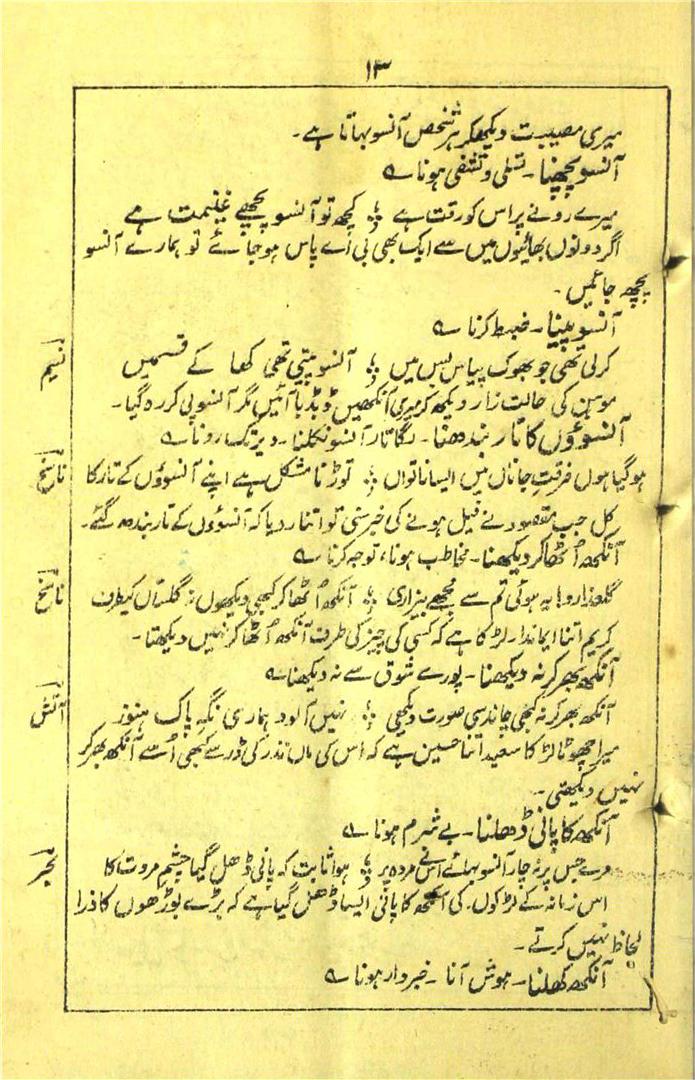 ۱۳
میری مصیبت دیکھکر ہر شخص آنسو بہاتا ہے۔
آنسو پچھنا۔ تسلی و تشفی ہونا ؎
میرے رونے پر اس کو رقت ہے ؛ کچھ تو آنسو پچھے غنیمت ہے
اگر دونوں بھائیوں میں سے ایک بھی بی اے پاس ہوجائے تو ہمارے آنسو
پچھ جائیں۔
آنسو پینا۔ ضبط کرنا ؎
کرلی تھی جو بھوک پیاس بس میں ؛ آنسو پیتی تھی کھا کے قسمیں نسیم
موہن کی حالت زار دیکھ کر میری آنکھیں ڈبڈبا آئیں مگر آنسو پی کر رہ گیا۔
آنسوؤں کا تار بندھنا۔ لگاتار آنسو نکلنا۔ دیر تک رونا ؎
ہوگیا ہوں فرقت جاناں میں ایسا ناتواں ؛ توڑنا مشکل ہے اپنے آنسوؤں کے تار کا ناسخ
کل جب مقصود نے فیل ہونے کی خبر سنی تو اتنا رویا کہ آنسوؤں کے تار بندھ گئے۔
آنکھ اُٹھا کر دیکھنا۔ مخاطب ہونا، توجہ کرنا ؎
گلعذارو! یہ ہوئی تم سے مجھے بیزاری ؛ آنکھ اُٹھا کر کبھی دیکھوں نہ گلستاں کیطرف ناسخ
کریم اتنا ایماندار لڑکا ہے کہ کسی کی چیز کی طرف آنکھ اُٹھا کر نہیں دیکھتا۔
آنکھ بھر کر نہ دیکھنا۔ پورے شوق سے نہ دیکھنا ؎
آنکھ بھر کر نہ کبھی چاند سی صورت دیکھی ؛ نہیں آلودہ ہماری نگہِ پاک ہنوز آتش
میرا چھوٹا لڑکا سعید اتنا حسین ہے کہ اس کی ماں نذر کی ڈر سے کبھی اُسے آنکھ بھر کر
نہیں دیکھتی۔
آنکھ کا پانی ڈھلنا۔ بے شرم ہونا ؎
جس پر نہ چار آنسو بہائے اس نے مردہ پر ؛ ہوا ثابت کہ پانی ڈھل گیا چشمِ مروت کا
اس زمانہ کے لڑکوں کی آنکھ کا پانی ایسا ڈھل گیا ہے کہ بڑے بوڑھوں کا ذرا
لحاظ نہیں کرتے۔
آنکھ کھلنا۔ ہوش آنا۔ خبردار ہونا ؎